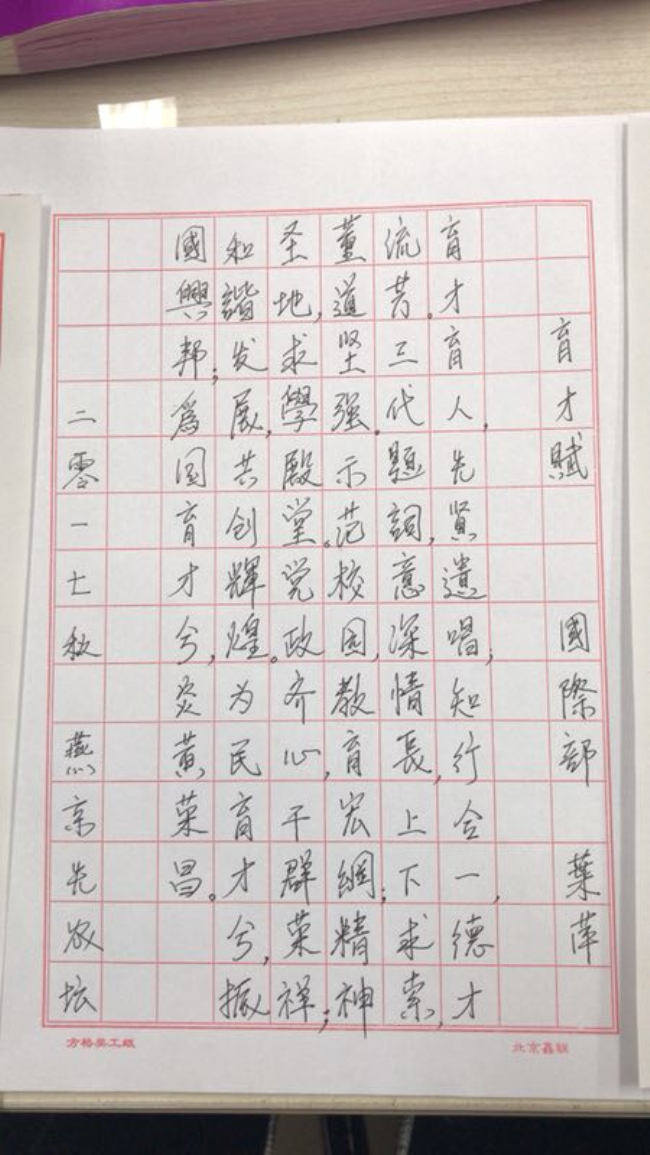 育才賦 國際部 葉萍
育才育人,先賢遺唱;知行合一,德才
流芳。三代題詞,意深情長,上下求索,
董道坚强。示范校园,教育宏綱;精神
圣地,求學殿堂。党政齐心,干群荣祥;
和諧发展,共创輝煌。为民育才兮,振
國興邦;爲国育才兮,炎黄荣昌。
二零一七秋 燕京先农坛
方格美工纸
北京鑫